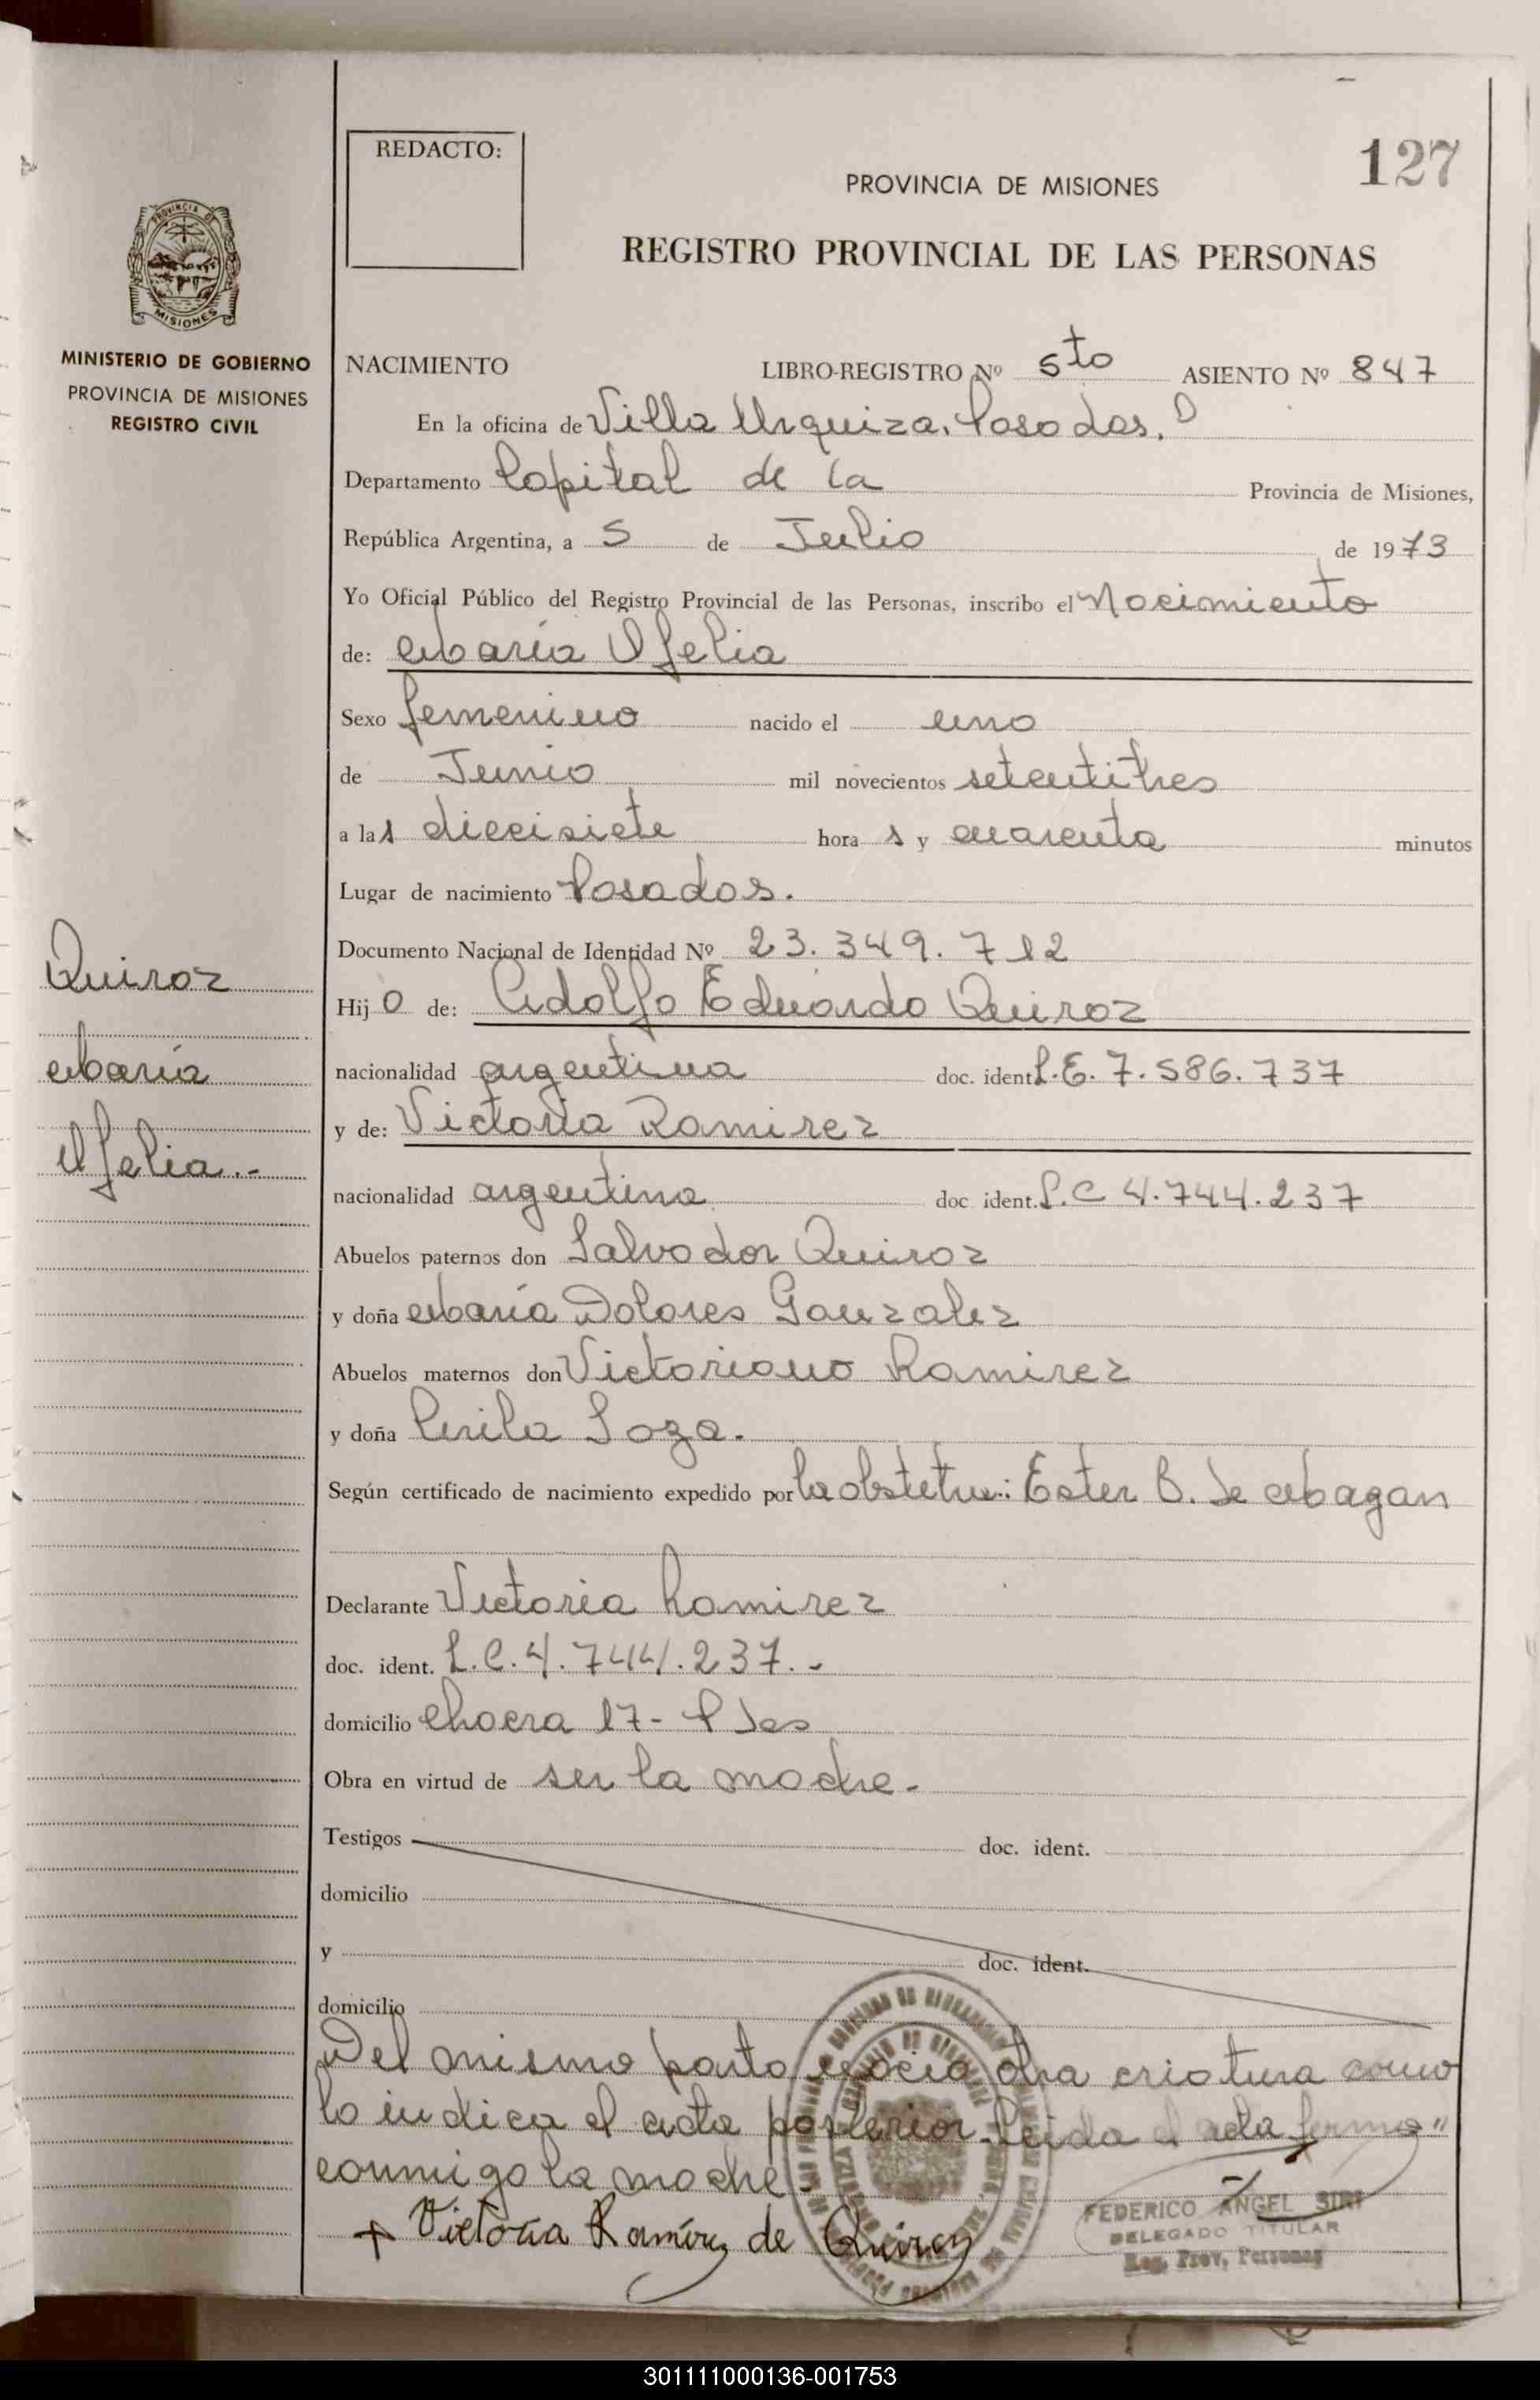 127
REDACTO:
PROVINCIA DE MISIONES
REGISTRO PROVINCIAL DE LAS PERSONAS
PROVINCIA DE
MISIONES
MINISTERIO DE GOBIERNO
PROVINCIA DE MISIONES
REGISTRO CIVIL
NACIMIENTO LIBRO-REGISTRO Nº 5to ASIENTO Nº 847
En la oficina de Villa Urquiza. Posadas.
Departamento Capital de la Provincia de Misiones,
República Argentina, a 5 de Julio de 1973
Yo Oficial Público del Registro Provincial de las Personas, inscribo el Nacimiento
de: María Ofelia
Sexo femenino nacido el uno
de Junio mil novecientos setentitres
a las diecisiete hora s y cuarenta minutos
Lugar de nacimiento Posadas.
Documento Nacional de Identidad Nº 23.349.712
Quiroz
María
Ofelia.-
Hij a de: Adolfo Eduardo Quiroz
nacionalidad argentina doc. ident. L.E. 7.586.737
y de: Victoria Ramirez
nacionalidad argentina doc. ident. L.C 4.744.237
Abuelos paternos don Salvador Quiroz
y doña María Dolores Gonzalez
Abuelos maternos don Victoriano Ramirez
y doña Soza.
Según certificado de nacimiento expedido por la obstetra: Ester B. de Magan
Declarante Victoria Ramirez
doc. ident. L.C. 4.744.237.-
domicilio Chacra 17- Pdas
Obra en virtud de ser la madre.
Testigos doc. ident.
domicilio
y doc. ident.
domicilio
Del mismo parto nació otra criatura como
lo indica el acta posterior. Leida el acta firma"
conmigo la madre.
+ Victoria Ramírez de Quiroz
FEDERICO ANGEL SIRI
DELEGADO TITULAR
Reg. Prov. Personas
301111000136-001753